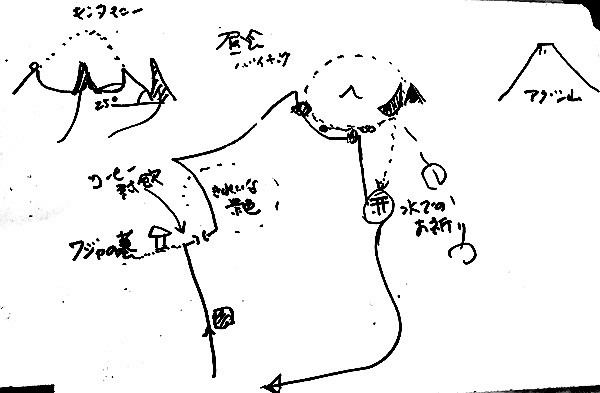 キンタマニー
25°
昼食
バイキング
アグン山
コーヒー
試飲
きれいな
景色
ワジャの墓
水での
お祈り